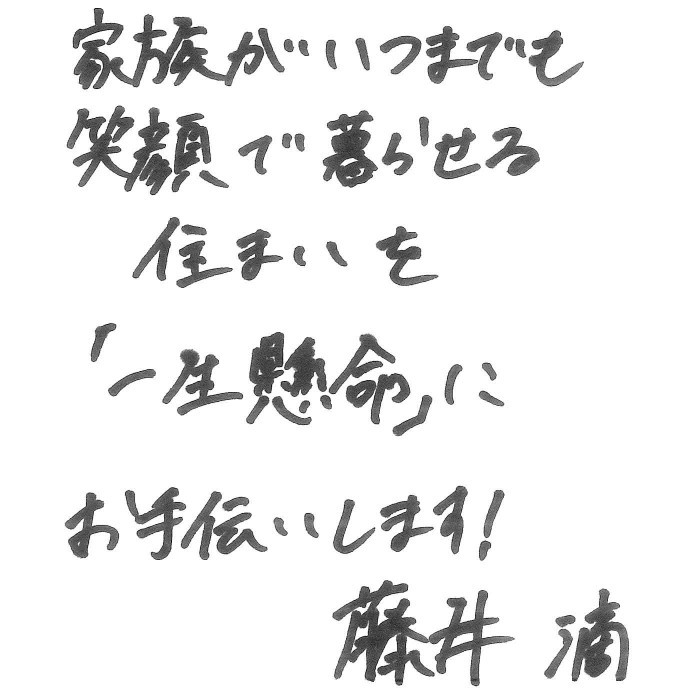 家族がいつまでも
笑顔で暮らせる
住まいを
「一生懸命」に
お手伝いします!
藤井 満